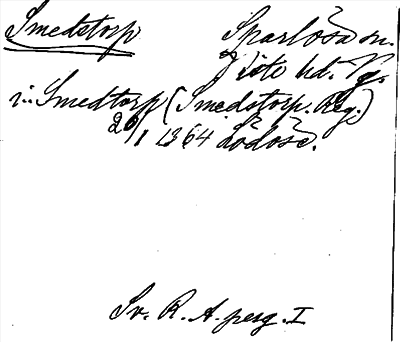 Smedstorp Sparlösa sn.
Viste hd. Vg.
i Smedtorp (Smedstorp. Reg.)
20/1 1364 Lödöse.
Sv. R. A. perg. I